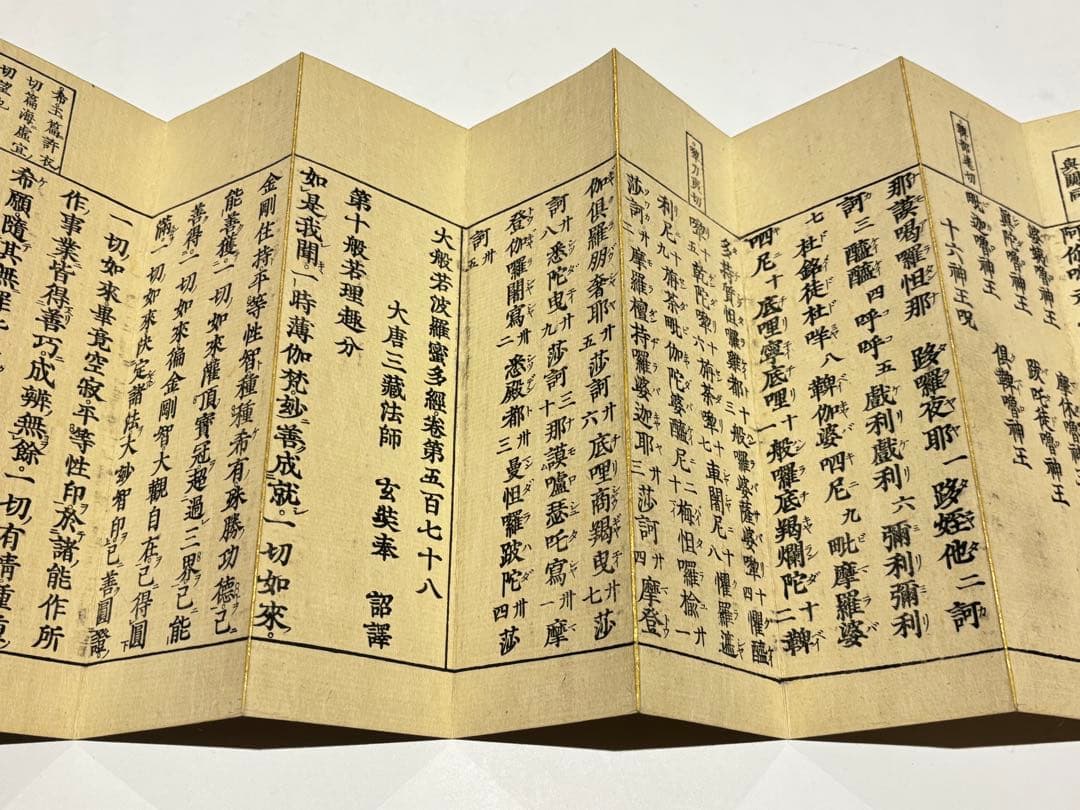 眞陀嚕神王
毗迦嚕神王　倶鞞嚕神王
十六神王呪
那謨喝囉怛那　跢囉夜耶一跢姪他二訶
訶三醯醯四呼呼五戲利戲利六彌利彌利
七杜銘徒杜咩八鞞伽婆呬尼九毗摩羅婆
呬尼十底哩寧底哩十一般囉底羯爛陀十二鞞
多持質怛囉雞都十三般囉婆薩婆嚟十四懼醯
嚟十五乾陀嚟十六旃荼嚟十七車闍尼十八懼羅邏
利尼十九旃荼毗伽陀婆醯尼二十梅怛囉檢廿一
莎訶廿二摩羅檀持羅婆迦耶廿三莎訶廿四摩登
伽倶羅朋奢耶廿五莎訶廿六底哩商羯曳廿七莎
訶廿八悉陀曳廿九莎訶三十那謨嚧瑟吒寫卅一摩
登伽囉闍寫卅二悉殿都卅三曼怛囉跛陀卅四莎
訶卅五
大般若波羅蜜多經卷第五百七十八
大唐三藏法師　玄奘奉　詔譯
第十般若理趣分
如是我聞。一時薄伽梵妙善成就。一切如來。
金剛住持平等性智種種希有殊勝功德已
能善獲一切如來灌頂寶冠超過三界已能
善得。一切如來徧金剛智大觀自在已得圓
滿。一切如來決定諸法大妙智印已善圓證。
一切如來畢竟空寂平等性印於諸能作所
作事業皆得善巧成辨無餘。一切有情種種
希願隨其無罪